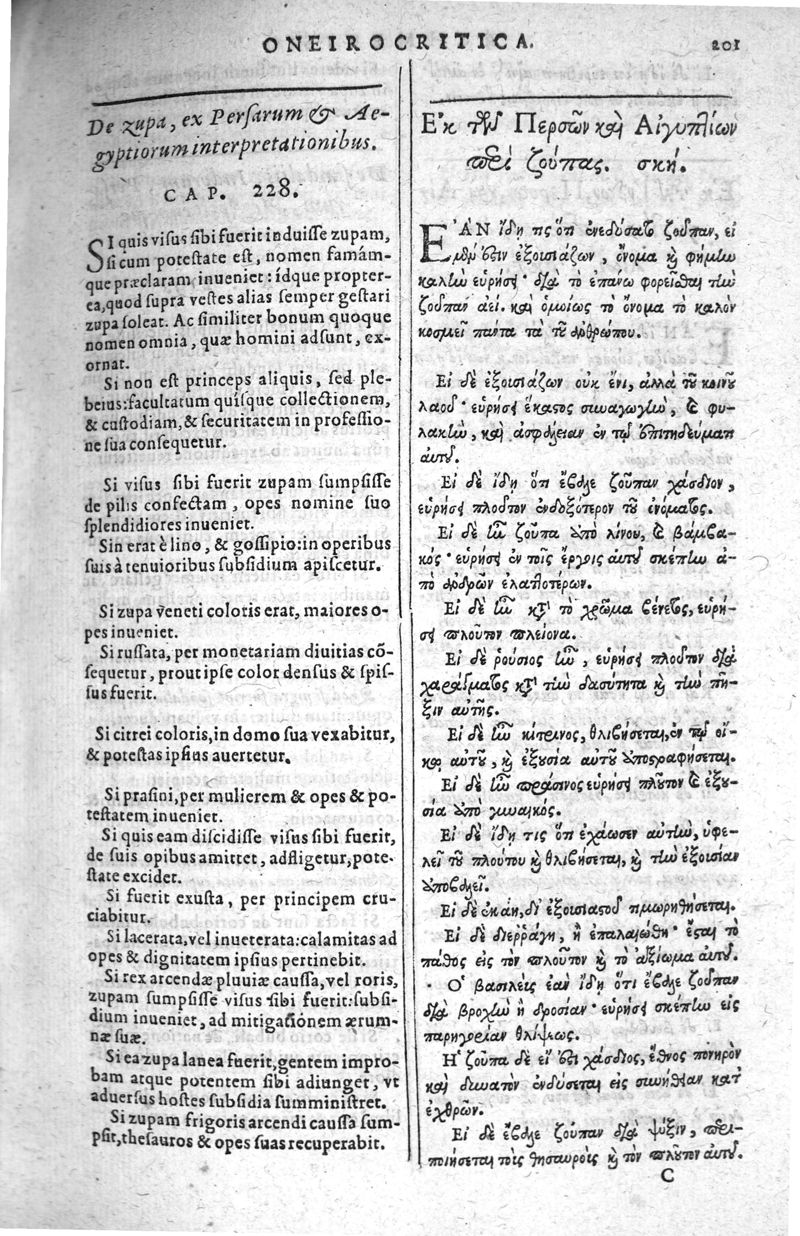 ONEIROCRITICA.
201
De zupa, ex Persarum & Ae-
gyptiorum interpretationibus.
CAP. 228.
SI quis visus sibi fuerit induisse zupam,
si cum potestate est, nomen famám-
que præclaram inueniet: ídque propter-
ea, quod supra vestes alias semper gestari
zupa soleat. Ac similiter bonum quoque
nomen omnia, quæ homini adsunt, ex-
ornat.
Si non est princeps aliquis, sed ple-
beius: facultatum quísque collectionem,
& custodiam, & securitatem in professio-
ne sua consequetur.
Si visus sibi fuerit zupam sumpsisse
de pilis confectam, opes nomine suo
splendidiores inueniet.
Sin erat è lino, & gossipio: in operibus
suis à tenuioribus subsidium apiscetur.
Si zupa veneti coloris erat, maiores o-
pes inueniet.
Si russata, per monetariam diuitias cō-
sequetur, prout ipse color densus & spis-
sus fuerit.
Si citrei coloris, in domo sua vexabitur,
& potestas ipsius auertetur.
Si prasini, per mulierem & opes & po-
testatem inueniet.
Si quis eam discidisse visus sibi fuerit,
de suis opibus amittet, adfligetur, pote-
state excidet.
Si fuerit exusta, per principem cru-
ciabitur.
Si lacerata, vel inueterata: calamitas ad
opes & dignitatem ipsius pertinebit.
Si rex arcendæ pluuiæ caussa, vel roris,
zupam sumpsisse visus sibi fuerit: subsi-
dium inueniet, ad mitigationem ærum-
næ suæ.
Si ea zupa lanea fuerit, gentem impro-
bam atque potentem sibi adiunget, vt
aduersus hostes subsidia sumministret.
Si zupam frigoris arcendi caussa sum-
psit, thesauros & opes suas recuperabit.
Ἐκ τῶν Περσῶν καὶ Αἰγυπτίων
περὶ ζούπας. σκή.
ἘΑΝ ἴδῃ τις ὅτι ἐνεδύσατο ζοῦπαν, εἰ
μέν ἐστιν ἐξουσιάζων, ὄνομα καὶ φήμην
καλὴν εὑρήσει· διὰ τὸ ἐπάνω φορεῖσθαι τὴν
ζοῦπαν ἀεί. καὶ ὁμοίως τὸ ὄνομα τὸ καλὸν
κοσμεῖ πάντα τὰ τοῦ ἀνθρώπου.
Εἰ δὲ ἐξουσιάζων οὐκ ἔνι, ἀλλὰ τοῦ κοινοῦ
λαοῦ· εὑρήσει ἕκαστος συναγωγὴν, καὶ φυ-
λακὴν, καὶ ἀσφάλειαν ἐν τῷ ἐπιτηδεύματι
αὐτοῦ.
Εἰ δὲ ἴδῃ ὅτι ἔβαλε ζοῦπαν χάσδιον,
εὑρήσει πλοῦτον ἐνδοξότερον τοῦ ὀνόματος.
Εἰ δὲ ἦν ζοῦπα ἀπὸ λίνου, καὶ βάμβα-
κός· εὑρήσει ἐν τοῖς ἔργοις αὐτοῦ σκέπην ἀ-
πὸ ἀνδρῶν ἐλαττοτέρων.
Εἰ δὲ ἦν κατὰ τὸ χρῶμα βένετος, εὑρή-
σει πλοῦτον πλείονα.
Εἰ δὲ ῥούσιος ἦν, εὑρήσει πλοῦτον διὰ
χαράγματος κατὰ τὴν δασύτητα καὶ τὴν πῆ-
ξιν αὐτῆς.
Εἰ δὲ ἦν κίτρινος, θλιβήσεται, ἐν τῷ οἴ-
κῳ αὐτοῦ, καὶ ἐξουσία αὐτοῦ ἀποστραφήσεται.
Εἰ δὲ ἦν πράσινος εὑρήσει πλοῦτον καὶ ἐξου-
σία ἀπὸ γυναικός.
Εἰ δὲ ἴδῃ τις ὅτι ἐχάωσεν αὐτὴν, ὑφε-
λεῖ τοῦ πλούτου καὶ θλιβήσεται, καὶ τὴν ἐξουσίαν
ἀποβαλεῖ.
Εἰ δὲ ἐκάη, δι' ἐξουσιαστοῦ τιμωρηθήσεται.
Εἰ δὲ διερράγη, ἢ ἐπαλαιώθη· ἔσται τὸ
πάθος εἰς τὸν πλοῦτον καὶ τὸ ἀξίωμα αὐτοῦ.
Ὁ βασιλεὺς ἐὰν ἴδῃ ὅτι ἔβαλε ζοῦπαν
διὰ βροχὴν ἢ δροσίαν· εὑρήσει σκέπην εἰς
παρηγορίαν θλίψεως.
Ἡ ζοῦπα δὲ εἰ ἔστι χάσδιος, ἔθνος πονηρὸν
καὶ δυνατὸν ἐνδύσεται εἰς συνήθειαν κατ'
ἐχθρῶν.
Εἰ δὲ ἔβαλε ζοῦπαν διὰ ψύξιν, περι-
ποιήσεται τοῖς θησαυροῖς καὶ τὸν πλοῦτον αὐτοῦ.
C